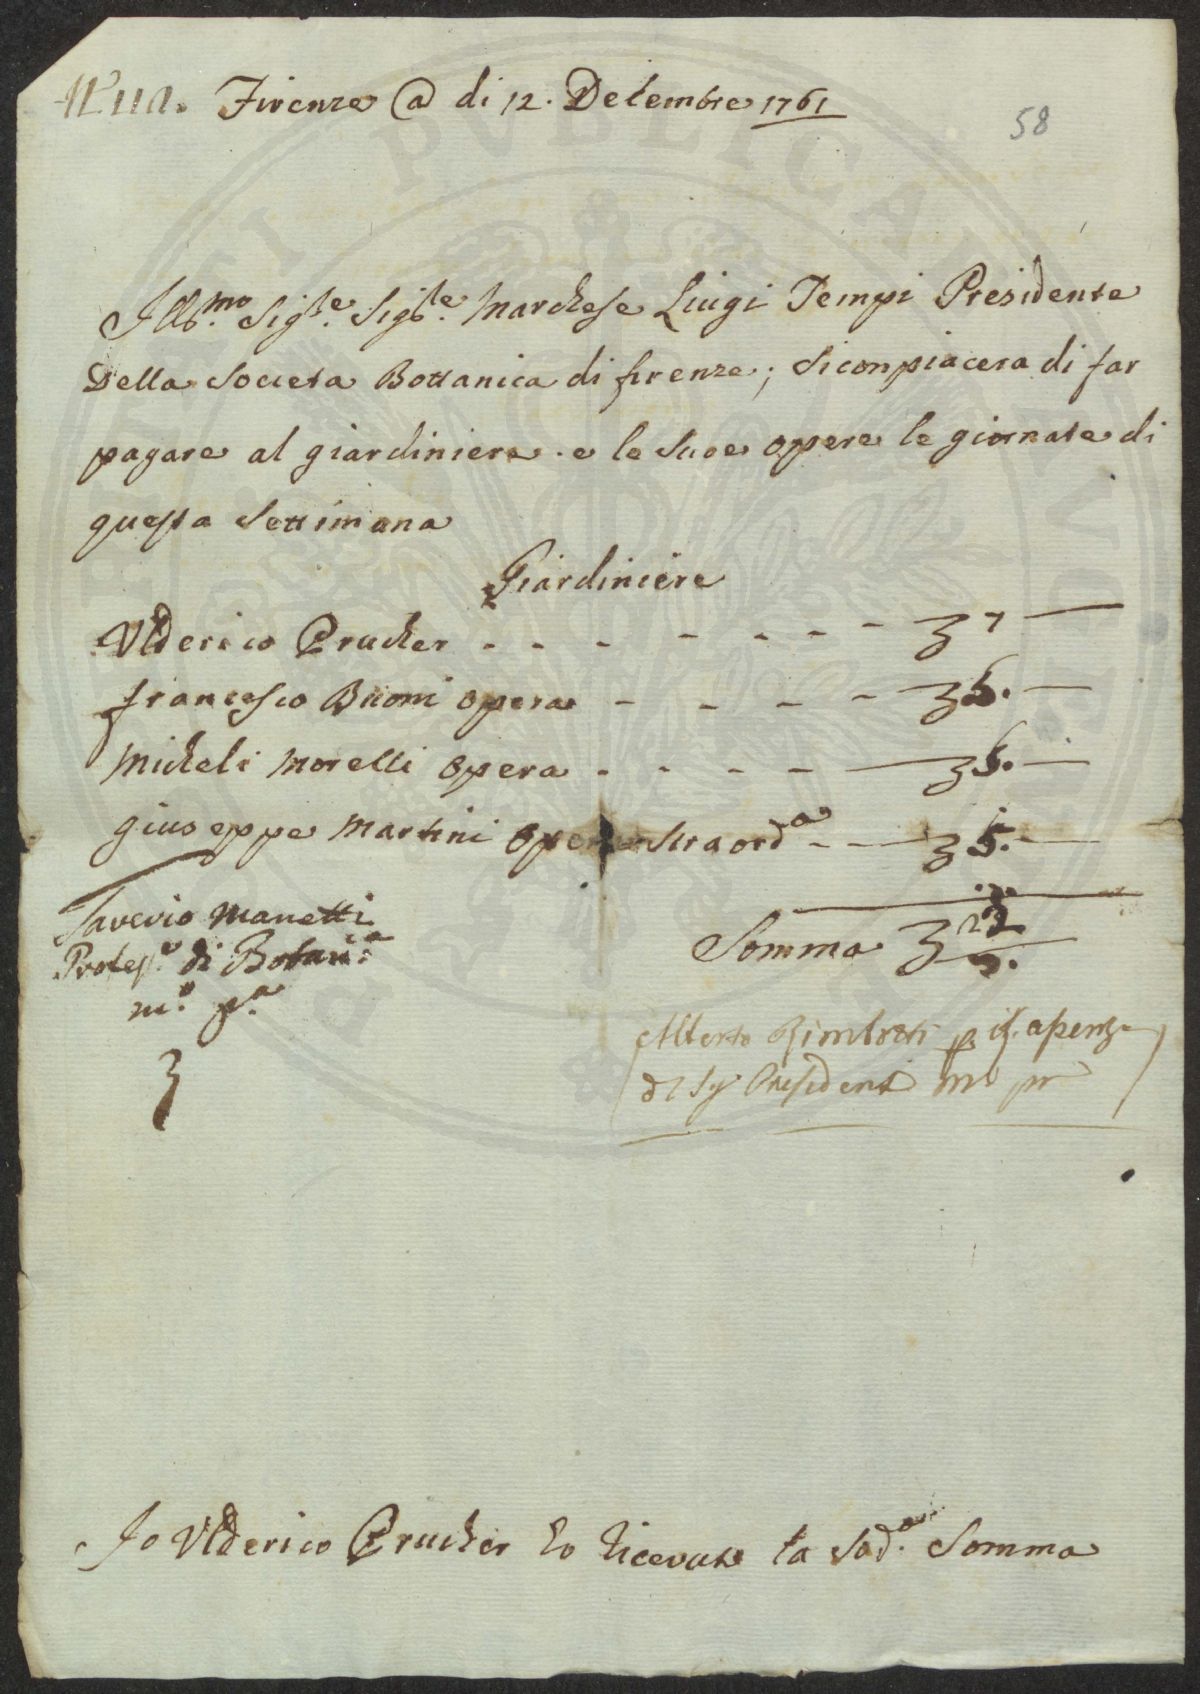 Firenze @ di 12. Decembre 1761
58
Ill.mo Sig.re Sig.re Marchese Luigi Tempi Presidente
Della Societa Bottanica di firenze; Si conpiacera di far
pagare al giardiniere e le Suoe opere le giornate di
questa Settimana
Giardiniere
Vlderico Prucker - - - - - - - 7 —
francesco Buoni opera - - - - 5. —
Micheli Morelli opera - - - - 5. —
giuseppe Martini opera straord.a - - 5. —
Saverio Manetti
Profes.e di Botani.a
m.o p.a
Somma
Alberto Rimbotti p
Sig President mo pr
PUBLICA
Io Vlderico Prucker ho Ricevute la Sod.a Somma